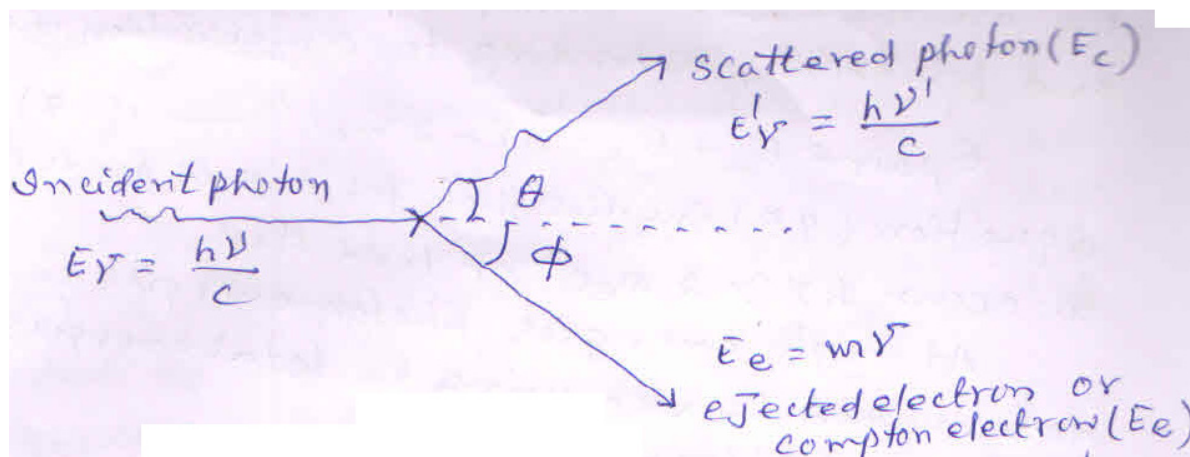 scattered photon (Ec)
E'γ = hν'/c
Incident photon
θ
Eγ = hν/c
ϕ
Ee = mv
ejected electron or
compton electron (Ee)